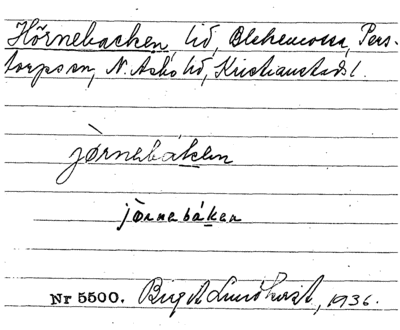 Hörnebacken, lid, Blekemossa, Pers-
torps sn, N. Åsbo hd, Kristianstads l.
jörnebáken
jörnebáken
Nr 5500. Birgit Lundkvist, 1936.